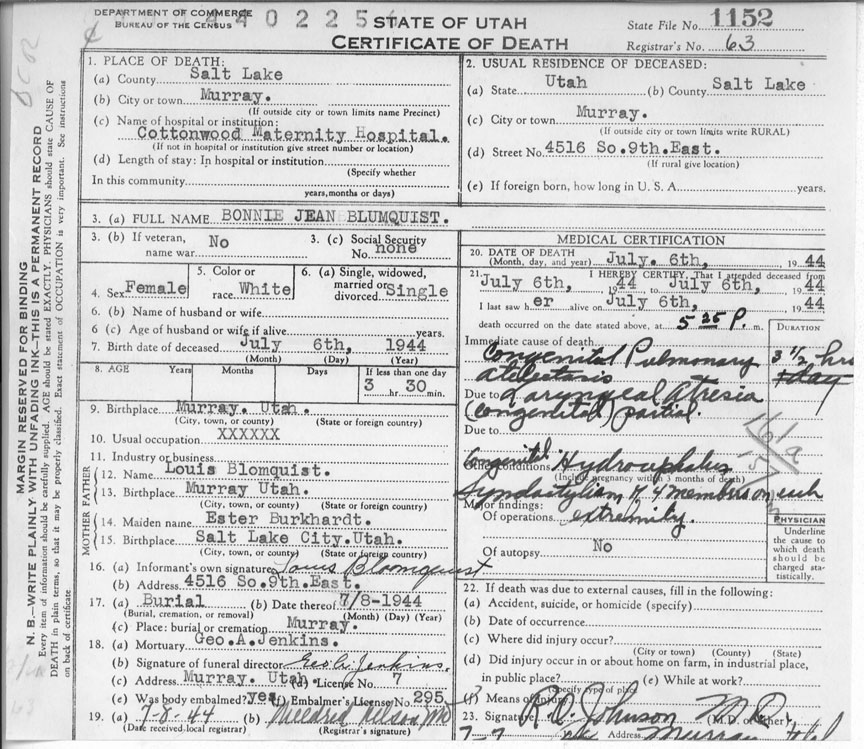 DEPARTMENT OF COMMERCE
BUREAU OF THE CENSUS
440225
STATE OF UTAH
CERTIFICATE OF DEATH
State File No. 1152
Registrar's No. 63
MARGIN RESERVED FOR BINDING
N. B.—WRITE PLAINLY WITH UNFADING INK—THIS IS A PERMANENT RECORD
Every item of information should be carefully supplied. AGE should be stated EXACTLY. PHYSICIANS should state CAUSE OF
DEATH in plain terms, so that it may be properly classified. Exact statement of OCCUPATION is very important. See instructions
on back of certificate.
1. PLACE OF DEATH:
(a) County Salt Lake
(b) City or town Murray.
(If outside city or town limits name Precinct)
(c) Name of hospital or institution:
Cottonwood Maternity Hospital.
(If not in hospital or institution give street number or location)
(d) Length of stay: In hospital or institution
(Specify whether
In this community
years, months or days)
2. USUAL RESIDENCE OF DECEASED:
(a) State Utah (b) County Salt Lake
(c) City or town Murray.
(If outside city or town limits write RURAL)
(d) Street No. 4516 So.9th.East.
(If rural give location)
(e) If foreign born, how long in U. S. A. years.
3. (a) FULL NAME BONNIE JEAN BLUMQUIST.
3. (b) If veteran, name war No
3. (c) Social Security No. none
4. Sex Female
5. Color or race White
6. (a) Single, widowed, married or divorced Single
6. (b) Name of husband or wife
6. (c) Age of husband or wife if alive years.
7. Birth date of deceased July 6th, 1944
(Month) (Day) (Year)
8. AGE Years Months Days If less than one day
3 hr. 30 min.
9. Birthplace Murray. Utah.
(City, town, or county) (State or foreign country)
10. Usual occupation XXXXXX
11. Industry or business
FATHER
12. Name Louis Blomquist.
13. Birthplace Murray Utah.
(City, town, or county) (State or foreign country)
MOTHER
14. Maiden name Ester Burkhardt.
15. Birthplace Salt Lake City.Utah.
(City, town, or county) (State or foreign country)
16. (a) Informant's own signature Louis Blomquist
(b) Address 4516 So.9th.East.
17. (a) Burial (b) Date thereof 7/8-1944
(Burial, cremation, or removal) (Month) (Day) (Year)
(c) Place: burial or cremation Murray.
18. (a) Mortuary Geo.A.Jenkins.
(b) Signature of funeral director Geo. A. Jenkins.
(c) Address Murray. Utah (d) License No. 7
(e) Was body embalmed? yes (f) Embalmer's License No 295
19. (a) 7-8-44 (b) Mildred Nelson
(Date received local registrar) (Registrar's signature)
MEDICAL CERTIFICATION
20. DATE OF DEATH
(Month, day, and year) July. 6th, 1944
21. I HEREBY CERTIFY, That I attended deceased from
July 6th, 1944 to July 6th, 1944
I last saw her alive on July 6th, 1944
death occurred on the date stated above, at 5 25 P. m.
DURATION
Immediate cause of death
Congenital Pulmonary 3 1/2 hrs
Atelectasis 1 day
Due to Laryngeal Atresia
(congenital) partial.
Due to
161a
Congenital
Other conditions Hydrocephalus
(Include pregnancy within 3 months of death)
Syndactylism of 4 members on each
Major findings:
Of operations extremity.
Of autopsy No
PHYSICIAN
Underline
the cause to
which death
should be
charged sta-
tistically.
22. If death was due to external causes, fill in the following:
(a) Accident, suicide, or homicide (specify)
(b) Date of occurrence
(c) Where did injury occur?
(City or town) (County) (State)
(d) Did injury occur in or about home on farm, in industrial place,
in public place? (e) While at work?
(Specify type of place)
(f) Means of injury
23. Signature R. O. Johnson M.D.
(M.D. or other)
7-7 Address Murray